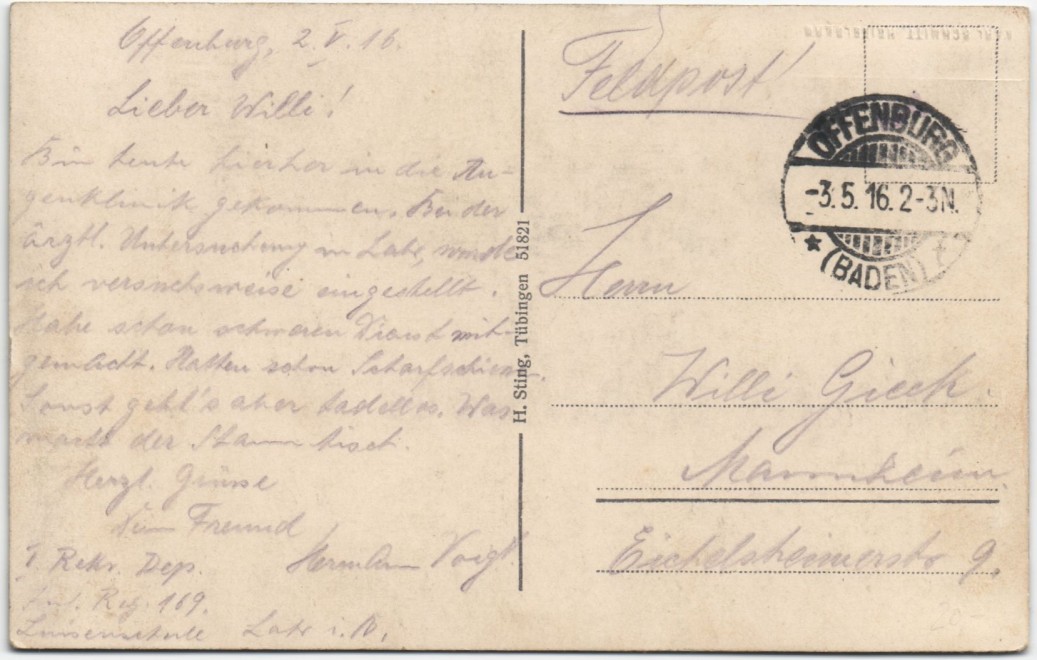 Offenburg, 2. V. 16.
Lieber Willi!
Bin heute hierher in die Au-
genklinik gekommen. Bei der
ärztl. Untersuchung in Lahr, wurde
ich versuchsweise eingestellt.
Habe schon schweren Dienst mit-
gemacht. Hatten schon Scharfschiess.
Sonst geht's aber tadellos. Was
macht der Stammtisch.
Herzl. Grüsse
Dein Freund
Hermann Voigt
I Rekr. Dep.
Inf. Reg. 169.
Luisenschule Lahr i. B.
H. Sting, Tübingen 51821
Feldpost!
OFFENBURG
-3.5.16.2-3N.
(BADEN)
Herrn
Willi Gieck.
Mannheim
Eichelsheimerstr 9.